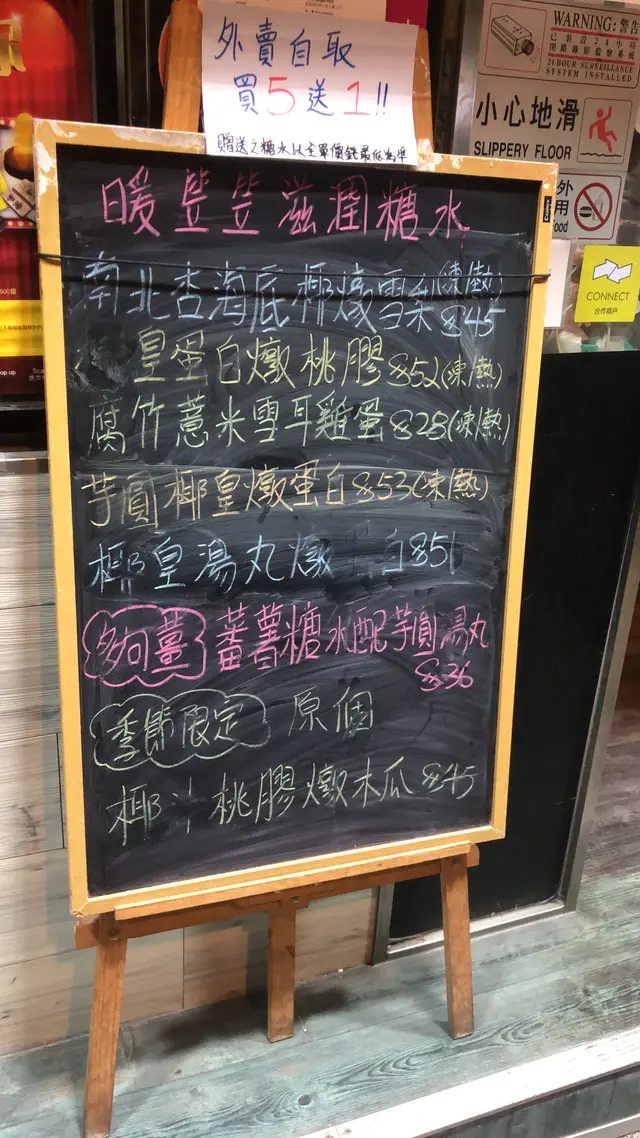 外賣自取
買5送1!!
贈送之糖水以全單價錢最低為準
暖笠笠滋潤糖水
南北杏海底椰燉雪梨(凍/熱)
$45
皇蛋白燉桃膠$52(凍/熱)
腐竹薏米雪耳雞蛋$28(凍/熱)
芋圓椰皇燉蛋白$53(凍/熱)
椰皇湯丸燉 白$51
多向薑 蕃薯糖水配芋圓湯丸
$36
季節限定 原個
椰汁桃膠燉木瓜 $45
WARNING: 警告
已裝設24小時
閉路錄影監察系統
24 HOUR SURVEILLANCE
SYSTEM INSTALLED
小心地滑
SLIPPERY FLOOR
外
用
Food
CONNECT
合作商戶